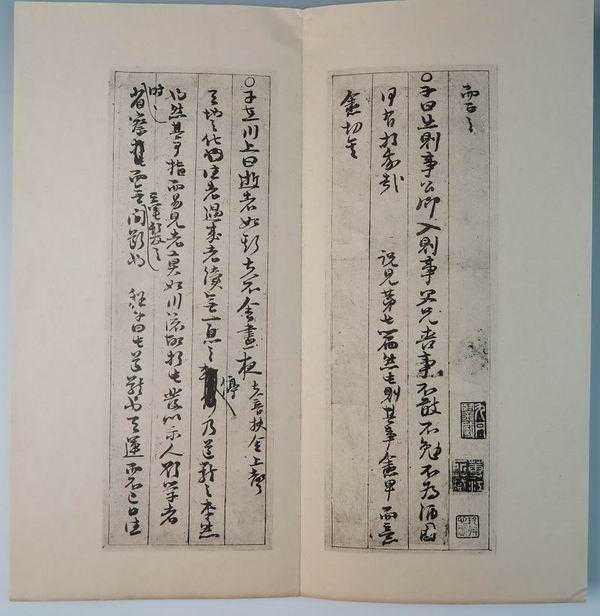 而正之
○子曰出則事公卿入則事父兄喪事不敢不勉不為酒困
何有於我哉　說見第七篇然此則其事愈卑而意
愈切矣
○子在川上曰逝者如斯夫不舍晝夜　夫音扶舍上聲
天地之化往者過來者續無一息之停乃道體之本然
也然其可指而易見者莫如川流故於此發以示人欲學者
時時
省察而無毫髮之間斷也　程子曰此道體也天運而不已日往